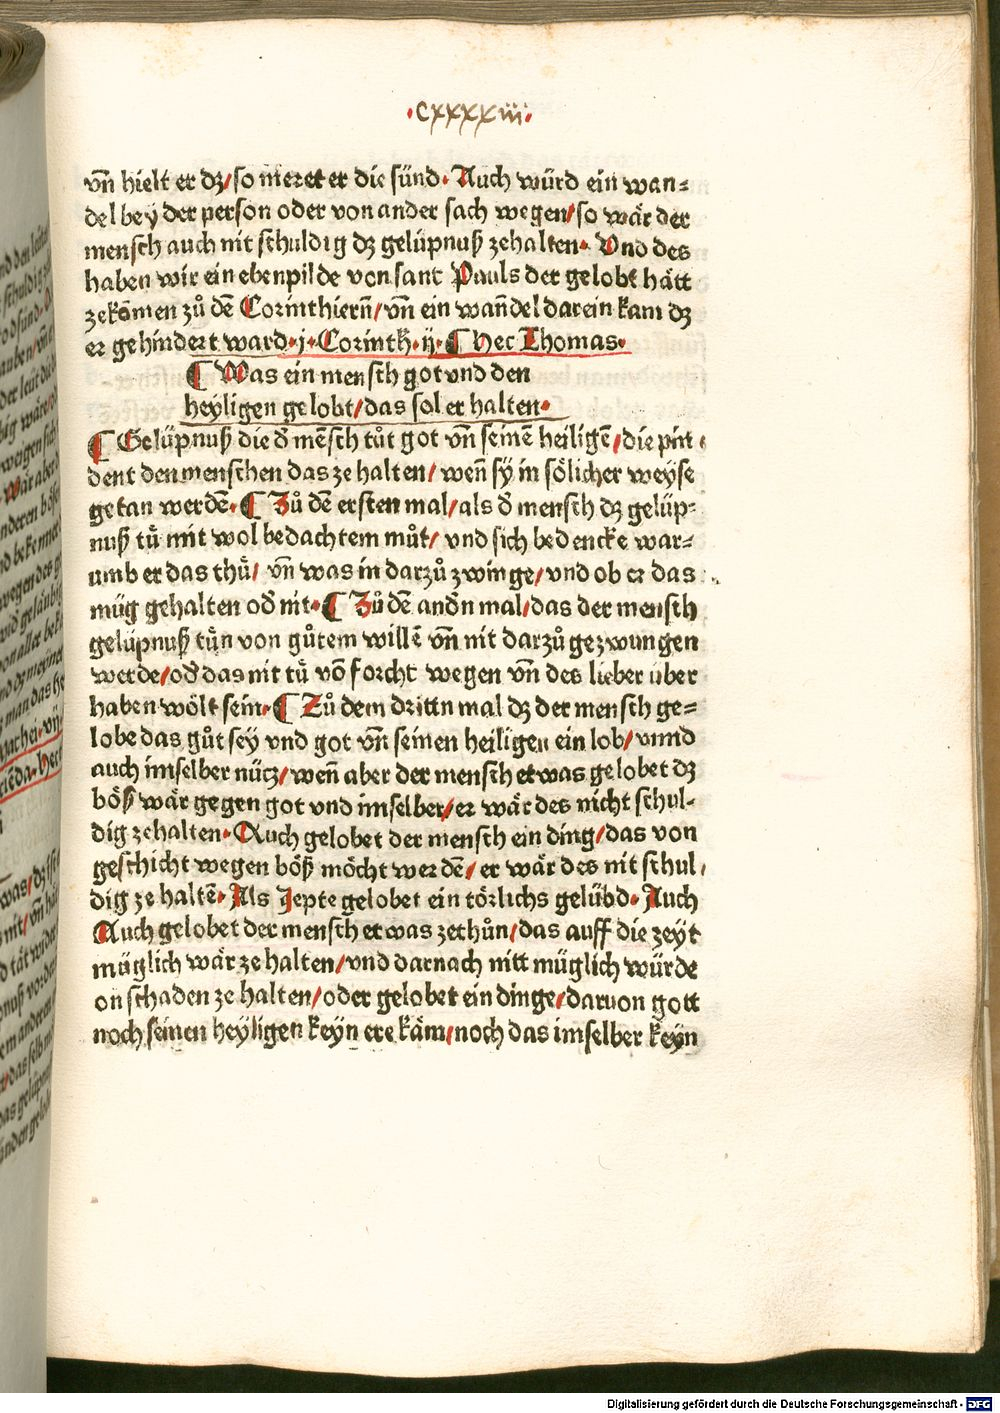 ·cxxxxiii·
vn̄ hielt er dz/so meret er die sünd· Auch würd ein wan⸗
del bey der person oder von ander sach wegen/so wär der
mensch auch nit schuldig dz gelüpnuß zehalten· Vnd des
haben wir ein ebenpilde von sant Pauls der gelobt hätt
zekōmen zů dē Corinthiern̄/vn̄ ein wan̄del darein kam dz
er gehindert ward·j·Corinth·ij·¶ Hec Thomas·
¶ Was ein mensch got vnd den
heyligen gelobt/das sol er halten·
¶ Gelüpnuß die d̄ mēsch tůt got vn̄ seinē heiligē/die pin
dent den menschen das ze halten/ wen̄ sy in sölicher weyse
getan werdē·¶ Zů dē ersten mal/als d̄ mensch dz gelüp⸗
nuß tů mit wol bedachtem můt/ vnd sich bedencke war⸗
umb er das thů/ vn̄ was in darzů zwinge/vnd ob er das
müg gehalten od̄ nit·¶ Zů dē andn̄ mal/das der mensch
gelüpnuß tün von gůtem willē vn̄ nit darzů gezwungen
werde/od̄ das nit tů vō forcht wegen vn̄ des lieber über
haben wölt sein·¶ Zů dem drittn mal dz der mensch ge⸗
lobe das gůt sey vnd got vn̄ seinen heiligen ein lob/ vnnd
auch imselber nücz/wen̄ aber der mensch etwas gelobet dz
böß wär gegen got vnd imselber/er wär des nicht schul⸗
dig zehalten·Auch gelobet der mensch ein ding/das von
geschicht wegen böß möcht werdē/ er wär des nit schul
dig ze haltē· Als Jepte gelobet ein törlichs gelübd· Auch
Auch gelobet der mensch etwas zethůn/das auff die zeyt
müglich wär ze halten/vnd darnach nitt müglich würde
on schaden ze halten/oder gelobet ein dinge/daruon gott
noch seinen heyligen keyn ere käm/noch das imselber keyn
Digitalisierung gefördert durch die Deutsche Forschungsgemeinschaft - DFG